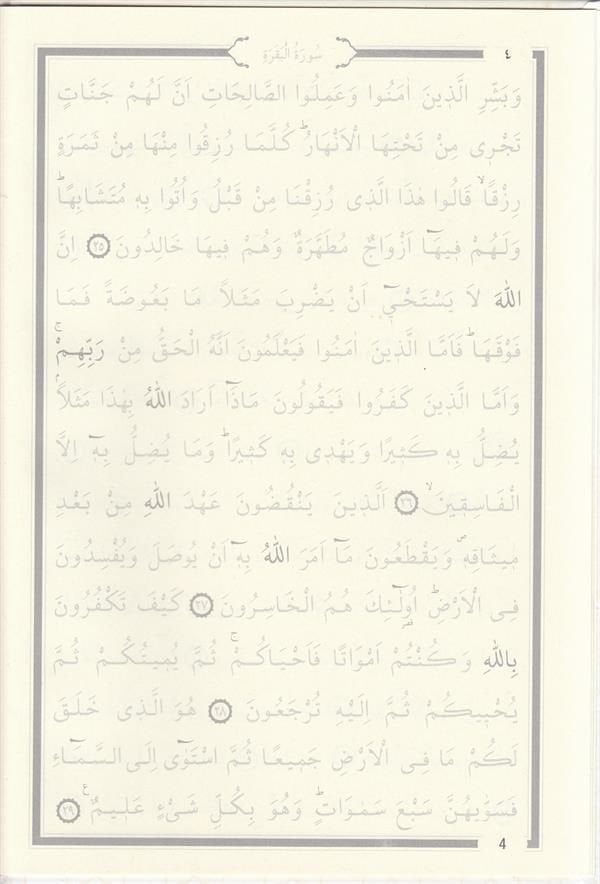 سُورَةُ الْبَقَرَةِ
٤
وَبَشِّرِ الَّذٖينَ اٰمَنُوا وَعَمِلُوا الصَّالِحَاتِ اَنَّ لَهُمْ جَنَّاتٍ
تَجْرٖى مِنْ تَحْتِهَا الْاَنْهَارُؕ كُلَّمَا رُزِقُوا مِنْهَا مِنْ ثَمَرَةٍ
رِزْقًاۙ قَالُوا هٰذَا الَّذٖى رُزِقْنَا مِنْ قَبْلُ وَاُتُوا بِهٖ مُتَشَابِهًاؕ
وَلَهُمْ فٖيهَٓا اَزْوَاجٌ مُطَهَّرَةٌ وَهُمْ فٖيهَا خَالِدُونَ ﴿٢٥﴾ اِنَّ
اللّٰهَ لَا يَسْتَحْيٖٓ اَنْ يَضْرِبَ مَثَلًا مَا بَعُوضَةً فَمَا
فَوْقَهَاؕ فَاَمَّا الَّذٖينَ اٰمَنُوا فَيَعْلَمُونَ اَنَّهُ الْحَقُّ مِنْ رَبِّهِمْۚ
وَاَمَّا الَّذٖينَ كَفَرُوا فَيَقُولُونَ مَاذَٓا اَرَادَ اللّٰهُ بِهٰذَا مَثَلًاۘ
يُضِلُّ بِهٖ كَثٖيرًا وَيَهْدٖى بِهٖ كَثٖيرًاؕ وَمَا يُضِلُّ بِهٖٓ اِلَّا
الْفَاسِقٖينَۙ ﴿٢٦﴾ اَلَّذٖينَ يَنْقُضُونَ عَهْدَ اللّٰهِ مِنْ بَعْدِ
مٖيثَاقِهٖࣕ وَيَقْطَعُونَ مَٓا اَمَرَ اللّٰهُ بِهٖٓ اَنْ يُوصَلَ وَيُفْسِدُونَ
فِى الْاَرْضِؕ اُو۬لٰٓئِكَ هُمُ الْخَاسِرُونَ ﴿٢٧﴾ كَيْفَ تَكْفُرُونَ
بِاللّٰهِ وَكُنْتُمْ اَمْوَاتًا فَاَحْيَاكُمْۚ ثُمَّ يُمٖيتُكُمْ ثُمَّ
يُحْيٖيكُمْ ثُمَّ اِلَيْهِ تُرْجَعُونَ ﴿٢٨﴾ هُوَ الَّذٖى خَلَقَ
لَكُمْ مَا فِى الْاَرْضِ جَمٖيعًا ثُمَّ اسْتَوٰٓى اِلَى السَّمَٓاءِ
فَسَوّٰيهُنَّ سَبْعَ سَمٰوَاتٍؕ وَهُوَ بِكُلِّ شَیْءٍ عَلٖيمٌࣖ ﴿٢٩﴾
4